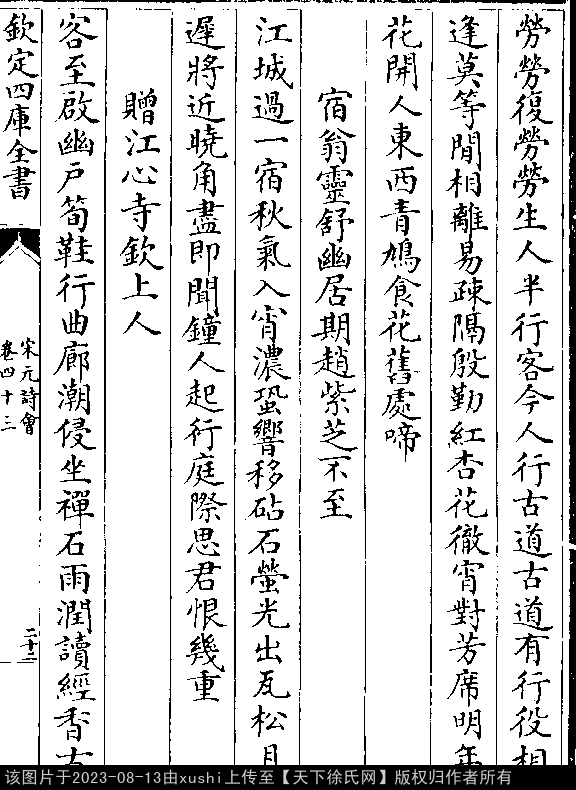 勞勞復勞勞生人半行客今人行古道古道有行役相
逢莫等閒相離易疎隔殷勤紅杏花徹宵對芳席明年
花開人東西青鳩食花舊處啼
宿翁靈舒幽居期趙紫芝不至
江城過一宿秋氣入宵濃蛩響移砧石螢光出瓦松月
遲將近曉角盡即聞鐘人起行庭際思君恨幾重
贈江心寺欽上人
客至啟幽戶筍鞋行曲廊潮侵坐禪石雨潤讀經香古
欽定四庫全書
宋元詩會
卷四十三
二十二
该图片于2023-08-13由xushi上传至【天下徐氏网】版权归作者所有